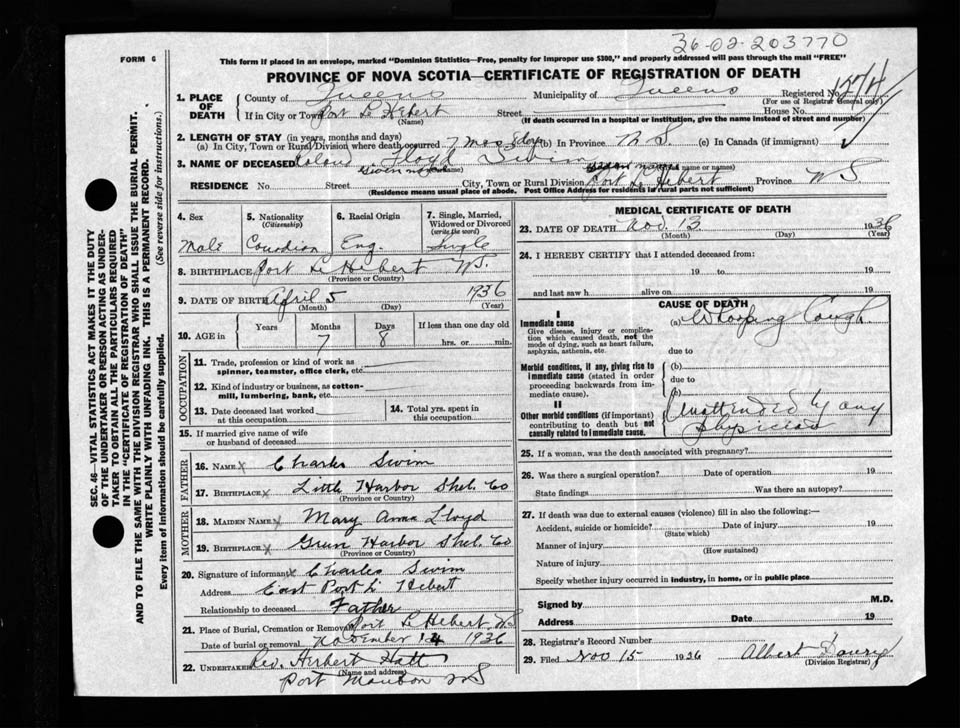 36-02-203770
FORM 6
This form if placed in an envelope, marked "Dominion Statistics—Free, penalty for improper use $300," and properly addressed will pass through the mail "FREE"
PROVINCE OF NOVA SCOTIA—CERTIFICATE OF REGISTRATION OF DEATH
1. PLACE OF DEATH County of Queens Municipality of Queens Registered No.
(For use of Registrar General only)
If in City or Town Port Le Hebert Street House No.
(Name) (If death occurred in a hospital or institution, give the name instead of street and number)
2. LENGTH OF STAY (in years, months and days)
(a) In City, Town or Rural Division where death occurred 7 mos 8 days (b) In Province N S. (c) In Canada (if immigrant)
3. NAME OF DECEASED Roland Lloyd Swim
RESIDENCE No. Street City, Town or Rural Division Port Le Hebert Province N S
(Residence means usual place of abode. Post Office Address for residents in rural parts not sufficient)
4. Sex
Male
5. Nationality
(Citizenship)
Canadian
6. Racial Origin
Eng.
7. Single, Married, Widowed or Divorced
(write the word)
Single
8. BIRTHPLACE Port Le Hebert NS.
(Province or Country)
9. DATE OF BIRTH April 5 1936
(Month) (Day) (Year)
10. AGE in Years Months Days If less than one day old
7 8 hrs. or min.
OCCUPATION
11. Trade, profession or kind of work as spinner, teamster, office clerk, etc.
12. Kind of industry or business, as cotton-mill, lumbering, bank, etc.
13. Date deceased last worked at this occupation
14. Total yrs. spent in this occupation
15. If married give name of wife or husband of deceased
FATHER
16. NAME x Charles Swim
17. BIRTHPLACE x Little Harbor Shel. Co
(Province or Country)
MOTHER
18. MAIDEN NAME x Mary Anna Lloyd
19. BIRTHPLACE x Green Harbor Shel. Co
(Province or Country)
20. Signature of informant x Charles Swim
Address East Port L. Hebert
Relationship to deceased Father
21. Place of Burial, Cremation or Removal Port L Hebert, NS
Date of burial or removal November 14 1936
22. UNDERTAKER Rev. Herbert Hatt
(Name and address)
Port Mouton NS
MEDICAL CERTIFICATE OF DEATH
23. DATE OF DEATH Nov. 13 1936
(Month) (Day) (Year)
24. I HEREBY CERTIFY that I attended deceased from:
19 to 19
and last saw h alive on 19
CAUSE OF DEATH
I
Immediate cause
Give disease, injury or complication which caused death, not the mode of dying, such as heart failure, asphyxia, asthenia, etc.
(a) Whooping Cough
due to
Morbid conditions, if any, giving rise to immediate cause (stated in order proceeding backwards from immediate cause).
(b)
due to
II
Other morbid conditions (if important) contributing to death but not causally related to immediate cause.
Unattended by any physician
25. If a woman, was the death associated with pregnancy?
26. Was there a surgical operation? Date of operation 19
State findings Was there an autopsy?
27. If death was due to external causes (violence) fill in also the following:—
Accident, suicide or homicide? Date of injury 19
(State which)
Manner of injury
(How sustained)
Nature of injury
Specify whether injury occurred in industry, in home, or in public place
Signed by M.D.
Address Date 19
28. Registrar's Record Number
29. Filed Nov 15 1936 Albert
(Division Registrar)
SEC. 46—VITAL STATISTICS ACT MAKES IT THE DUTY
OF THE UNDERTAKER OR PERSON ACTING AS UNDER-
TAKER TO OBTAIN ALL THE PARTICULARS REQUIRED
IN THE "CERTIFICATE OF REGISTRATION OF DEATH"
AND TO FILE THE SAME WITH THE DIVISION REGISTRAR WHO SHALL ISSUE THE BURIAL PERMIT.
WRITE PLAINLY WITH UNFADING INK. THIS IS A PERMANENT RECORD.
Every item of information should be carefully supplied. (See reverse side for instructions.)